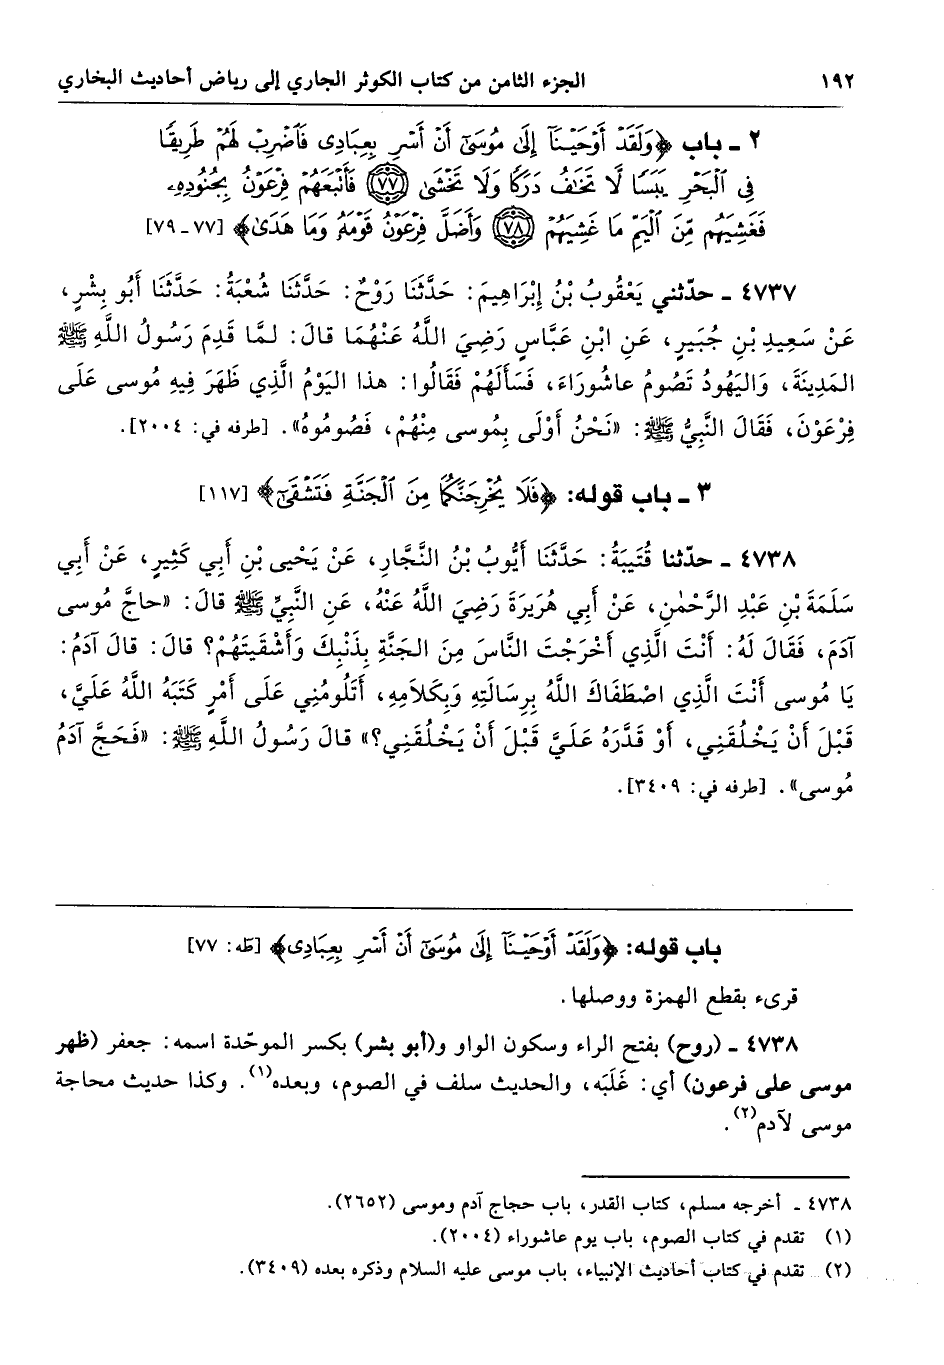 ١٩٢ الجزء الثامن من كتاب الكوثر الجاري إلى رياض أحاديث البخاري
٢ ـ باب ﴿وَلَقَدْ أَوْحَيْنَآ إِلَىٰ مُوسَىٰٓ أَنْ أَسْرِ بِعِبَادِى فَٱضْرِبْ لَهُمْ طَرِيقًا
فِى ٱلْبَحْرِ يَبَسًا لَّا تَخَـٰفُ دَرَكًا وَلَا تَخْشَىٰ ٧٧ فَأَتْبَعَهُمْ فِرْعَوْنُ بِجُنُودِهِۦ
فَغَشِيَهُم مِّنَ ٱلْيَمِّ مَا غَشِيَهُمْ ٧٨ وَأَضَلَّ فِرْعَوْنُ قَوْمَهُۥ وَمَا هَدَىٰ﴾ [٧٧ ـ ٧٩]
٤٧٣٧ ـ حدّثني يَعْقُوبُ بْنُ إِبْرَاهِيمَ: حَدَّثَنَا رَوْحٌ: حَدَّثَنَا شُعْبَةُ: حَدَّثَنَا أَبُو بِشْرٍ،
عَنْ سَعِيدِ بْنِ جُبَيرٍ، عَنِ ابْنِ عَبَّاسٍ رَضِيَ اللَّهُ عَنْهُمَا قالَ: لمَّا قَدِمَ رَسُولُ اللَّهِ ﷺ
المَدِينَةَ، وَاليَهُودُ تَصُومُ عاشُورَاءَ، فَسَأَلَهُمْ فَقَالُوا: هذا اليَوْمُ الَّذِي ظَهَرَ فِيهِ مُوسى عَلَى
فِرْعَوْنَ، فَقَالَ النَّبِيُّ ﷺ: «نَحْنُ أَوْلَى بِمُوسى مِنْهُمْ، فَصُومُوهُ». [طرفه في: ٢٠٠٤].
٣ ـ باب قوله: ﴿فَلَا يُخْرِجَنَّكُمَا مِنَ ٱلْجَنَّةِ فَتَشْقَىٰٓ﴾ [١١٧]
٤٧٣٨ ـ حدّثنا قُتَيبَةُ: حَدَّثَنَا أَيُّوبُ بْنُ النَّجَّارِ، عَنْ يَحْيى بْنِ أَبِي كَثِيرٍ، عَنْ أَبِي
سَلَمَةَ بْنِ عَبْدِ الرَّحْمٰنِ، عَنْ أَبِي هُرَيرَةَ رَضِيَ اللَّهُ عَنْهُ، عَنِ النَّبِيِّ ﷺ قالَ: «حاجَّ مُوسى
آدَمَ، فَقَالَ لَهُ: أَنْتَ الَّذِي أَخْرَجْتَ النَّاسَ مِنَ الجَنَّةِ بِذَنْبِكَ وَأَشْقَيتَهُمْ؟ قالَ: قالَ آدَمُ:
يَا مُوسى أَنْتَ الَّذِي اصْطَفَاكَ اللَّهُ بِرِسَالَتِهِ وَبِكَلَامِهِ، أَتَلُومُنِي عَلَى أَمْرٍ كَتَبَهُ اللَّهُ عَلَيَّ،
قَبْلَ أَنْ يَخْلُقَنِي، أَوْ قَدَّرَهُ عَلَيَّ قَبْلَ أَنْ يَخْلُقَنِي؟» قالَ رَسُولُ اللَّهِ ﷺ: «فَحَجَّ آدَمُ
مُوسى». [طرفه في: ٣٤٠٩].
باب قوله: ﴿وَلَقَدْ أَوْحَيْنَآ إِلَىٰ مُوسَىٰٓ أَنْ أَسْرِ بِعِبَادِى﴾ [طه: ٧٧]
قرىء بقطع الهمزة ووصلها.
٤٧٣٨ ـ (روح) بفتح الراء وسكون الواو و(أبو بشر) بكسر الموحّدة اسمه: جعفر (ظهر
موسى على فرعون) أي: غَلَبَه، والحديث سلف في الصوم، وبعده(١). وكذا حديث محاجة
موسى لآدم(٢).
٤٧٣٨ ـ أخرجه مسلم، كتاب القدر، باب حجاج آدم وموسى (٢٦٥٢).
(١) تقدم في كتاب الصوم، باب يوم عاشوراء (٢٠٠٤).
(٢) تقدم في كتاب أحاديث الإنبياء، باب موسى عليه السلام وذكره بعده (٣٤٠٩).